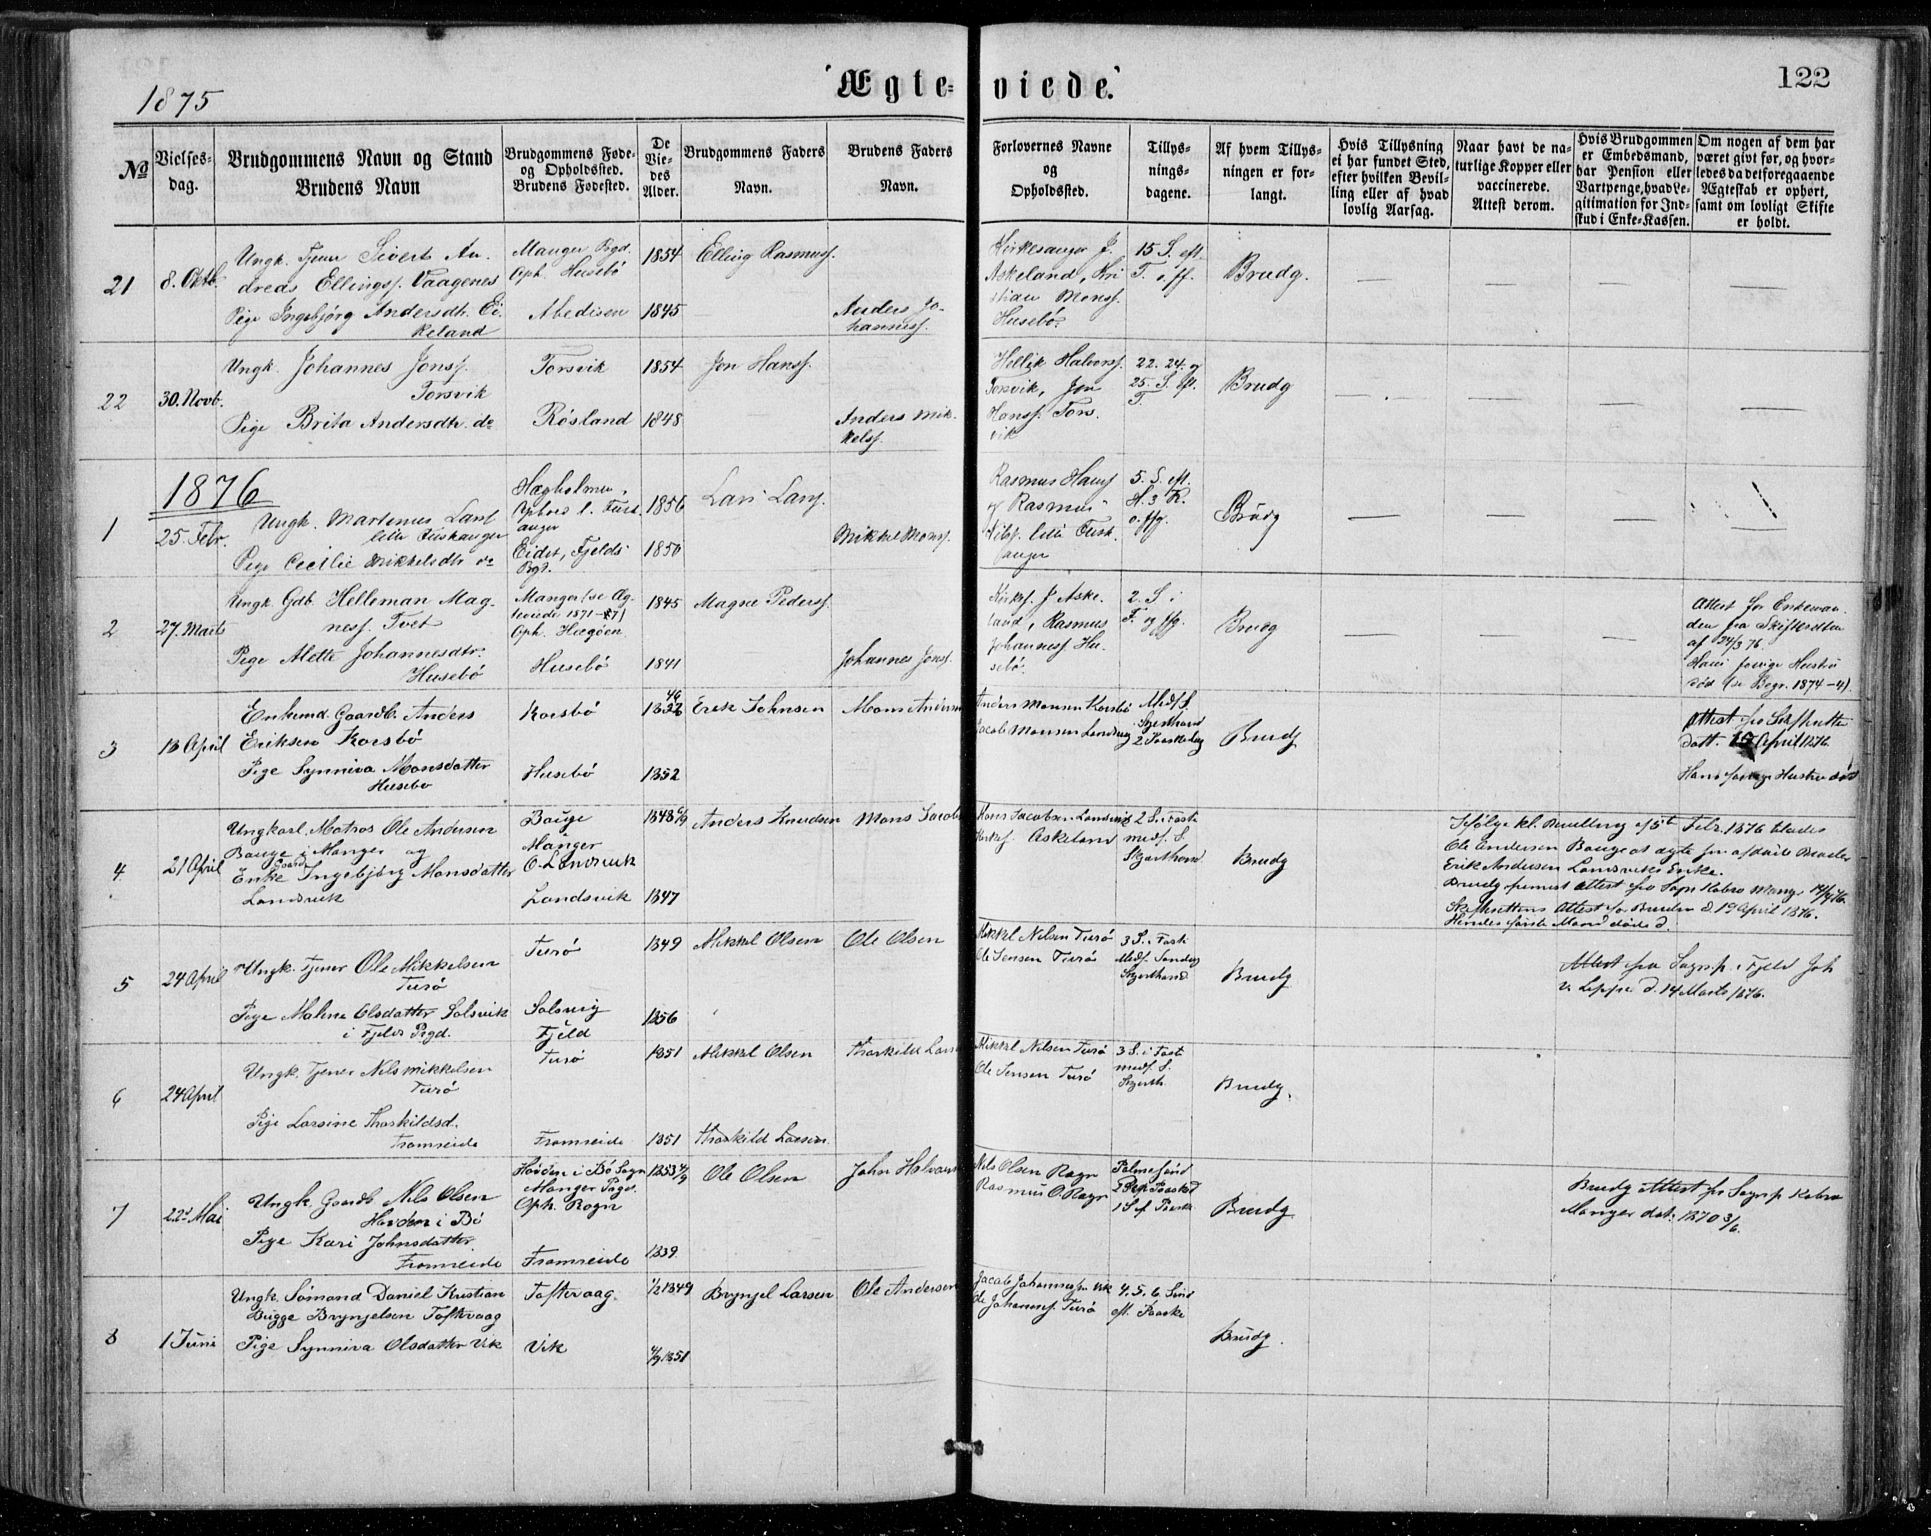 1875
Ægteviede.
122
No
Vielses-
dag.
Brudgommens Navn og Stand
Brudens Navn
Brudgommens Føde-
og Opholdssted.
Brudens Fødested.
De
Vie-
des
Alder.
Brudgommens Faders
Navn.
Brudens Faders
Navn.
Forlovernes Navne
og
Opholdssted.
Tillys-
nings-
dagene.
Af hvem Tillys-
ningen er for-
langt.
Hvis Tillysning
ei har fundet Sted,
efter hvilken Bevil-
ling eller af hvad
lovlig Aarsag.
Naar havt de na-
turlige Kopper eller
vaccinerede.
Attest derom.
Hvis Brudgommen
er Embedsmand,
har Pension eller
Vartpenge, hvad Le-
gitimation for Ind-
skud i Enke-Kassen.
Om nogen af dem har
været givt før, og hvor-
ledes da det foregaaende
Ægteskab er ophørt,
samt om lovligt Skifte
er holdt.
21
8. Oktb.
Ungk. Tjener Sivert An-
dreas Ellingss. Vaagenes
Pige Ingebjørg Andersdtr. Ei-
keland
Manger Pgd.
Oph. Husebø
Abedisen
1854
1845
Elling Rasmuss.
Anders Jo-
hanness.
Kirkesanger J.
Askeland, Kri
stian Monss.
Husebø.
15 S. eft.
T. o. ff.
Brudg.
22
30. Novb.
Ungk. Johannes Jonss.
Torsvik
Pige Brita Andersdtr. do
Torsvik
Røsland
1854
1848
Jon Hanss.
Anders Mik-
kelss.
Hellik Halvorss.
Torsvik, Jon
Hanss. Tors-
vik
22. 24. og
25. S. eft.
T.
Brudg
1876
1
25. Febr.
Ungk. Martenus Larss
lille Turshauger
Pige Cecilie Mikkelsdtr do
Hægholmen,
Ophold l. Tursh
auger
Eidet, Fjelds
Pgd.
1856
1850
Lars Larss.
Mikkel Monss.
Rasmus Hanss
og Rasmus
Nilss. lille Tursh
auger
5. S. eft.
H. 3 K.
o. ffg.
Brudg
2
27. Marts
Ungk. Gdb. Helleman Mag-
ness. Tvet
Pige Alette Johannesdtr.
Husebø
Manger (se Æg-
teviede 1871-7)
Oph. Hægøen
Husebø
1845
1841
Magne Pederss.
Johannes Jonss.
Kirkes. J. Aske-
land, Rasmus
Johanness. Hu-
sebø.
2. S. i
F. og ffg.
Brudg
Attest for Enkeman-
den fra Skifteretten
af 24/3 76.
Hans forrige Hustru
død (se Begr. 1874-4).
3
18 April
Enkemd. Gaardb. Anders
Eriksen Korsbø
Pige Synniva Monsdatter
Husebø
Korsbø
Husebø
1852
Erik Johnsen
Mons Anders
Anders Monsen Korsbø
Jacob Monsen Landsvig
Midf. S.
Skjærthorsd
2 Paaskedag
Brudg
Attest fra Skifteretten
datt. April 1876.
Hans forrige Hustru død
4
21 April
Ungkarl Matros Ole Andersen
Bauge i Manger og
Gaard
Enke Ingebjørg Monsdatter
Landsvik
Bauge
Manger
O. Landsvik
Landsvik
1848
1847
Anders Knudsen
Mons Jacobs
Hans Jacobsen Landsvig
Kirkes. Askeland
2 S. i Faste
midf. S.
Skjærthorsd
Brudg
Ifølge kl. Bevilling af 5te Febr. 1876 tillades
Ole Andersen Bauge at ægte sin afdøde Broder
Erik Andersen Landsviks Enke.
Brudg fremvist Attest fra Sogn Kobro Mang.
Skifterettens Attest for Bruden d 19 April 1876.
Hendes første Mand døde d.
5
24 April
Ungk. Tjener Ole Mikkelsen
Turø
Pige Malene Olsdatter Solsvik
i Fjelds Pgd.
Turø
Solsvig
Fjeld
1849
1856
Mikkel Olsen
Ole Olsen
Mikkel Nilsen Turø
Ole Jensen Turø
3 S. i Faste
Midf. Søndag
Skjærthorsd.
Brudg
Attest fra Sognep. i Fjeld Joh
v. Leppe d. 14 Marts 1876.
6
24 April
Ungk. Tjener Nils Mikkelsen
Turø
Pige Larsine Thorkildsd.
Framreide
Turø
Framreide
1851
1851
Mikkel Olsen
Thorkild Larsen
Thorkild Lars
Mikkel Nilsen Turø
Ole Jensen Turø
3 S. i Fast
midf. S.
Skjærth.
Brudg.
7
22d Mai
Ungk. Gaardb. Nils Olsen
Hovden i Bø
Pige Kari Johnsdatter
Framreide
Hovden i Bø Sogn
Manger Pgd.
Oph. Rogn
Framreide
1853 4/9
1839
Ole Olsen
John Halvors
Nils Olsen Rogn
Rasmus O. Rogn
Palmesønd
2den Paaskd
1 S. ef. Paaske
Brudg
Brudg Attest fra Sognep Kobro
Manger dat. 1870 3/6.
8
1 Juni
Ungk. Sømand Daniel Kristian
Bugge Brynjelsen Toftevaag
Pige Synniva Olsdatter Vik
Toftevaag.
Vik
1/2 1849
4/9 1851
Brynjel Larsen
Ole Andersen
Jacob Johannessen Vik
Ole Johanness. Turø
4. 5. 6 Sønd
eft. Paaske
Brudg.